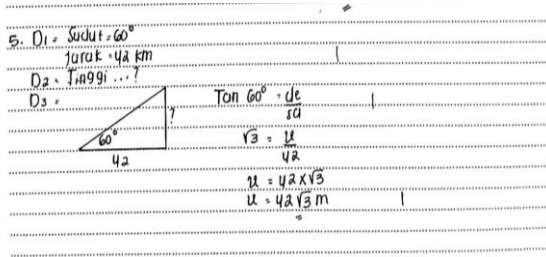 5. D1 = Sudut = 60°
Jarak = 42 km
D2 = Tinggi ... ?
D3 =
60°
?
42
Tan 60° = de/sa
√3 = u/42
u = 42 x √3
u = 42√3 m